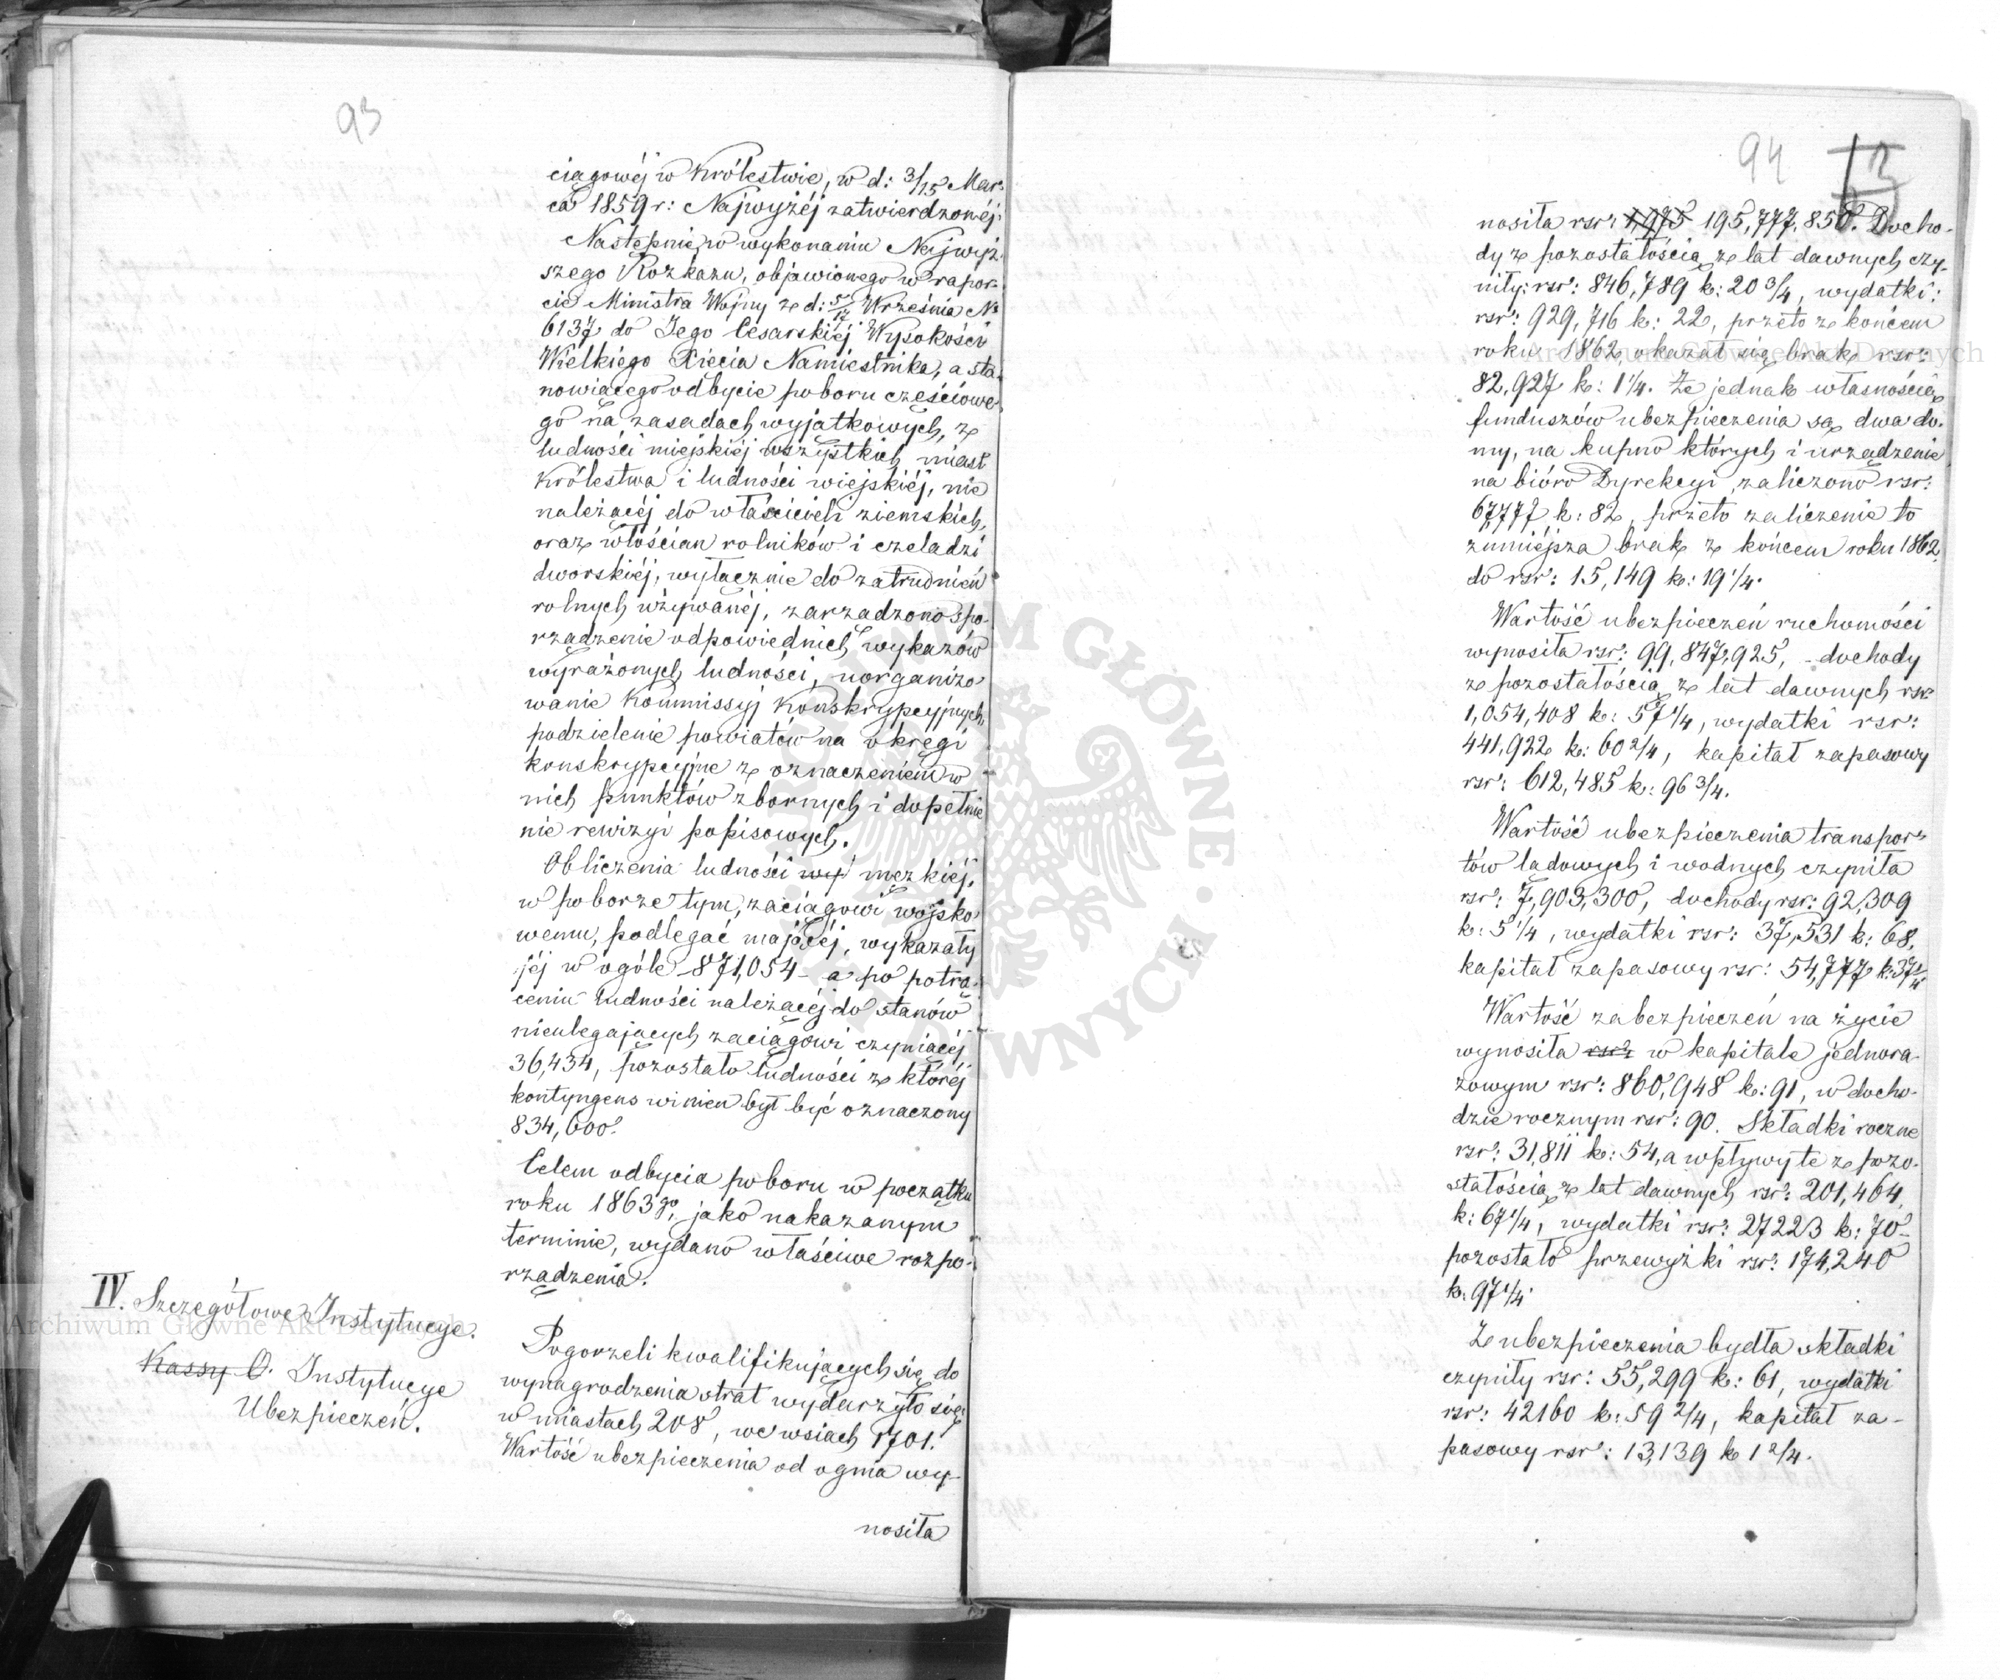 93
ciągowéj w Królestwie, w d: 3/15 Mar-
ca 1859 r: Najwyżéj zatwierdzonéj.
Następnie, w wykonaniu Najwyż-
szego Rozkazu, objawionego w rapor-
cie Ministra Wojny z d: 5/17 Września No
6137 do Jego Cesarskiéj Wysokości
Wielkiego Xięcia Namiestnika, a sta-
nowiącego odbycie poboru częściowe-
go na zasadach wyjątkowych, z
ludności miejskiéj wszystkich miast
Królestwa i ludności wiejskiéj, nie
należącéj do właścicieli ziemskich,
oraz włościan rolników i czeladzi
dworskiéj, wyłącznie do zatrudnień
rolnych używanéj, zarządzono spo-
rządzenie odpowiednich wykazów
wyrażonych ludności, uorganizo-
wanie Kommissyj Konskrypcyjnych,
podzielenie powiatów na okręgi
konskrypcyjne z oznaczeniem w
nich punktów zbornych i dopełnie
nie rewizyi popisowych.
Obliczenia ludności wy męzkiéj,
w poborze tym, zaciągowi wojsko-
wemu, podlegać mającéj, wykazały
jéj w ogóle 871,054 - a po potrą-
ceniu ludności należącéj do stanów
nieulegających zaciągowi czyniącéj
36,434, pozostało ludności z któréj
kontyngens winien był być oznaczony
834,600.
Celem odbycia poboru w początku
roku 1863go, jako nakazanym
terminie, wydano właściwe rozpo-
rządzenia.
IV. Szczegółowe Instytucye.
Kassy O. Instytucye
Ubezpieczeń.
Pogorzeli kwalifikujących się do
wynagrodzenia strat wydarzyło się:
w miastach 208, we wsiach 1701.
Wartość ubezpieczenia od ognia wy-
nosiła
94 13
nosiła rsr: 1,975 195,777,850. Docho-
dy z pozostałością z lat dawnych czy-
niły: rsr: 846,789 k: 20 3/4, wydatki:
rsr: 929,716 k: 22, przeto z końcem
roku 1862 okazał się brak rsr:
82,927 k: 1 1/4. Że jednak własnością
funduszów ubezpieczenia są dwa do-
my, na kupno których i urządzenie
na bióro Dyrekcyi zaliczono rsr:
67,777 k: 82, przeto zaliczenie to
zmniéjsza brak z końcem roku 1862
do rsr: 15,149 k: 19 1/4.
Wartość ubezpieczeń ruchomości
wynosiła rsr: 99,847,925, - dochody
z pozostałością z lat dawnych rsr:
1,054,408 k: 57 1/4, wydatki rsr:
441,922 k: 60 2/4, kapitał zapasowy
rsr: 612,485 k: 96 3/4.
Wartość ubezpieczenia transpor-
tów lądowych i wodnych czyniła
rsr: 7,903,300, dochody rsr: 92,309
k: 5 1/4, wydatki rsr: 37,531 k: 68,
kapitał zapasowy rsr: 54,777 k: 37 1/4
Wartość zabezpieczeń na życie
wynosiła rsr: w kapitale jednora-
zowym rsr: 860,948 k: 91, w docho-
dzie rocznym rsr: 90. Składki roczne
rsr: 31,811 k: 54, a wpływy te z pozo-
stałością z lat dawnych rsr: 201,464
k: 67 1/4, wydatki rsr: 27223 k: 70 -
pozostało przewyżki rsr: 174,240
k: 97 1/4
Z ubezpieczenia bydła składki
czyniły rsr: 55,299 k: 61, wydatki
rsr: 42160 k: 59 2/4, kapitał za-
pasowy rsr: 13,139 k 1 2/4.
ARCHIWUM GŁÓWNE AKT DAWNYCH
Archiwum Główne Akt Dawnych
Archiwum Główne Akt Dawnych